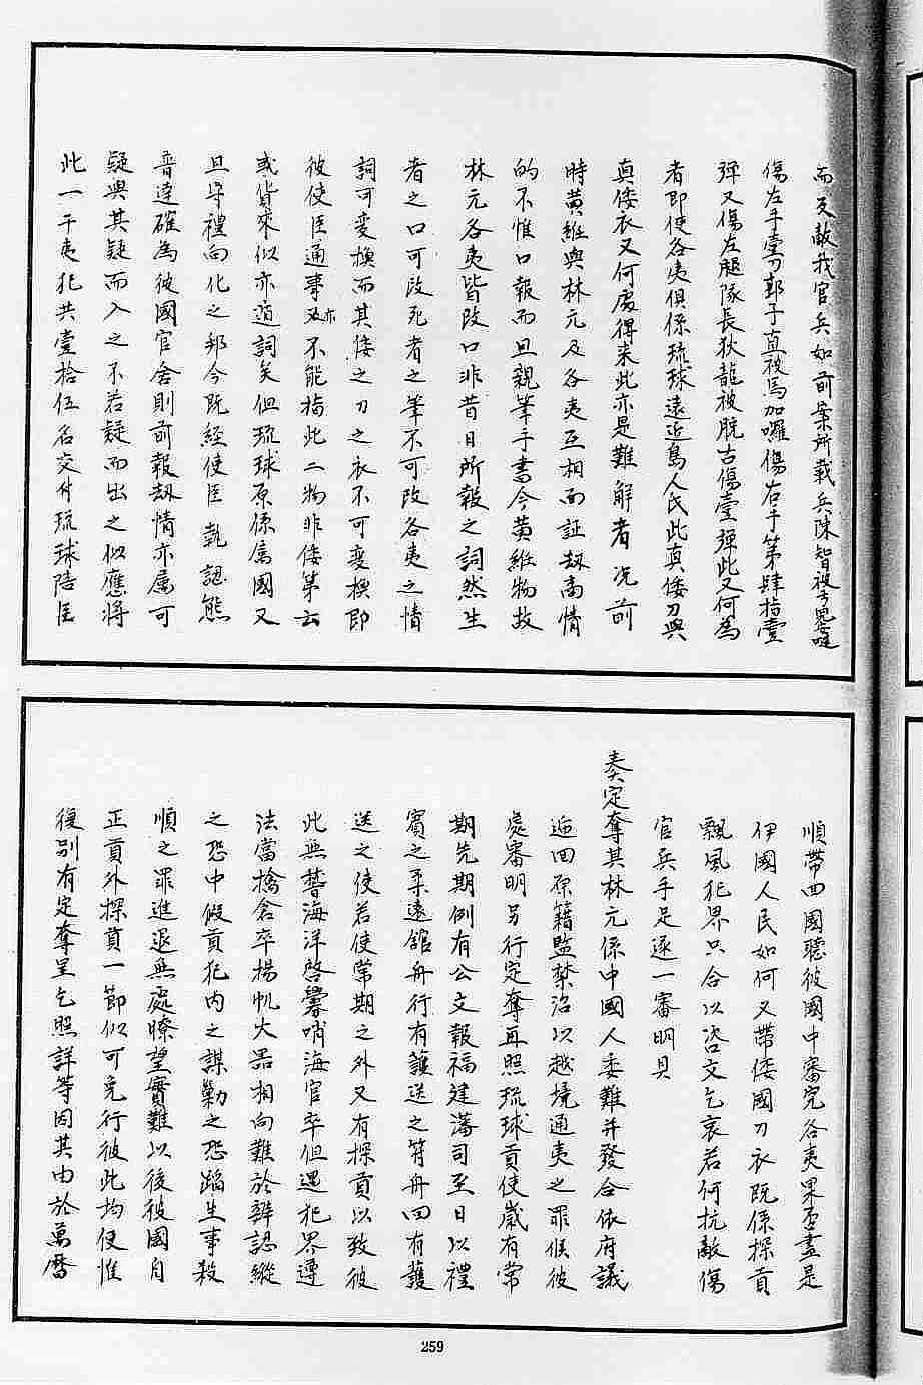 而反敵我官兵如前案所載兵陳智被
傷左手壹刀郭子直被馬加囉傷右手第肆指壹
彈又傷左腿隊長狄龍被脱古傷壹彈此又何為
者即使各夷俱係琉球遠近島人民此真倭刀與
真倭衣又何處得来此亦是難解者况前
時黄維與林元及各夷互相面証刼商情
的不惟口報而且親筆手書今黄維物故
林元各夷皆改口非昔日所報之詞然生
者之口可改死者之筆不可改各夷之情
詞可变換而其倭之刀之衣不可变換即
彼使臣通事亦不能指此二物非倭第云
或貨來似亦遁詞矣但琉球原係属國又
且守禮向化之邦今既經使臣執認熊
普達確為彼國官舍則前報刼情亦属可
疑與其疑而入之不若疑而出之似應將
此一干夷犯共壹拾伍名交付琉球陪臣
順帶回國聽彼國中審究各夷果否盡是
伊國人民如何又帶倭國刀衣既係探貢
飄風犯界只合以咨文乞哀若何抗敵傷
官兵手足逐一審明具
奏定奪其林元係中國人委難并發合依府議
逓回原籍監禁治以越境通夷之罪候彼
處審明另行定奪再照琉球貢使歲有常
期先期例有公文報福建藩司至日以禮
賓之柔遠舘舟行有護送之符舟回有護
送之使若使常期之外又有探貢以致彼
此無警海洋啓釁哨海官卒但遇犯界遵
法當擒倉卒揚帆大器相向難於辨認縱
之恐中假貢犯内之謀勦之恐蹈生事殺
順之罪進退無處瞭望實難以後彼國自
正貢外探貢一節似可免行彼此均便惟
復别有定奪呈乞照詳等因其由於萬曆
259